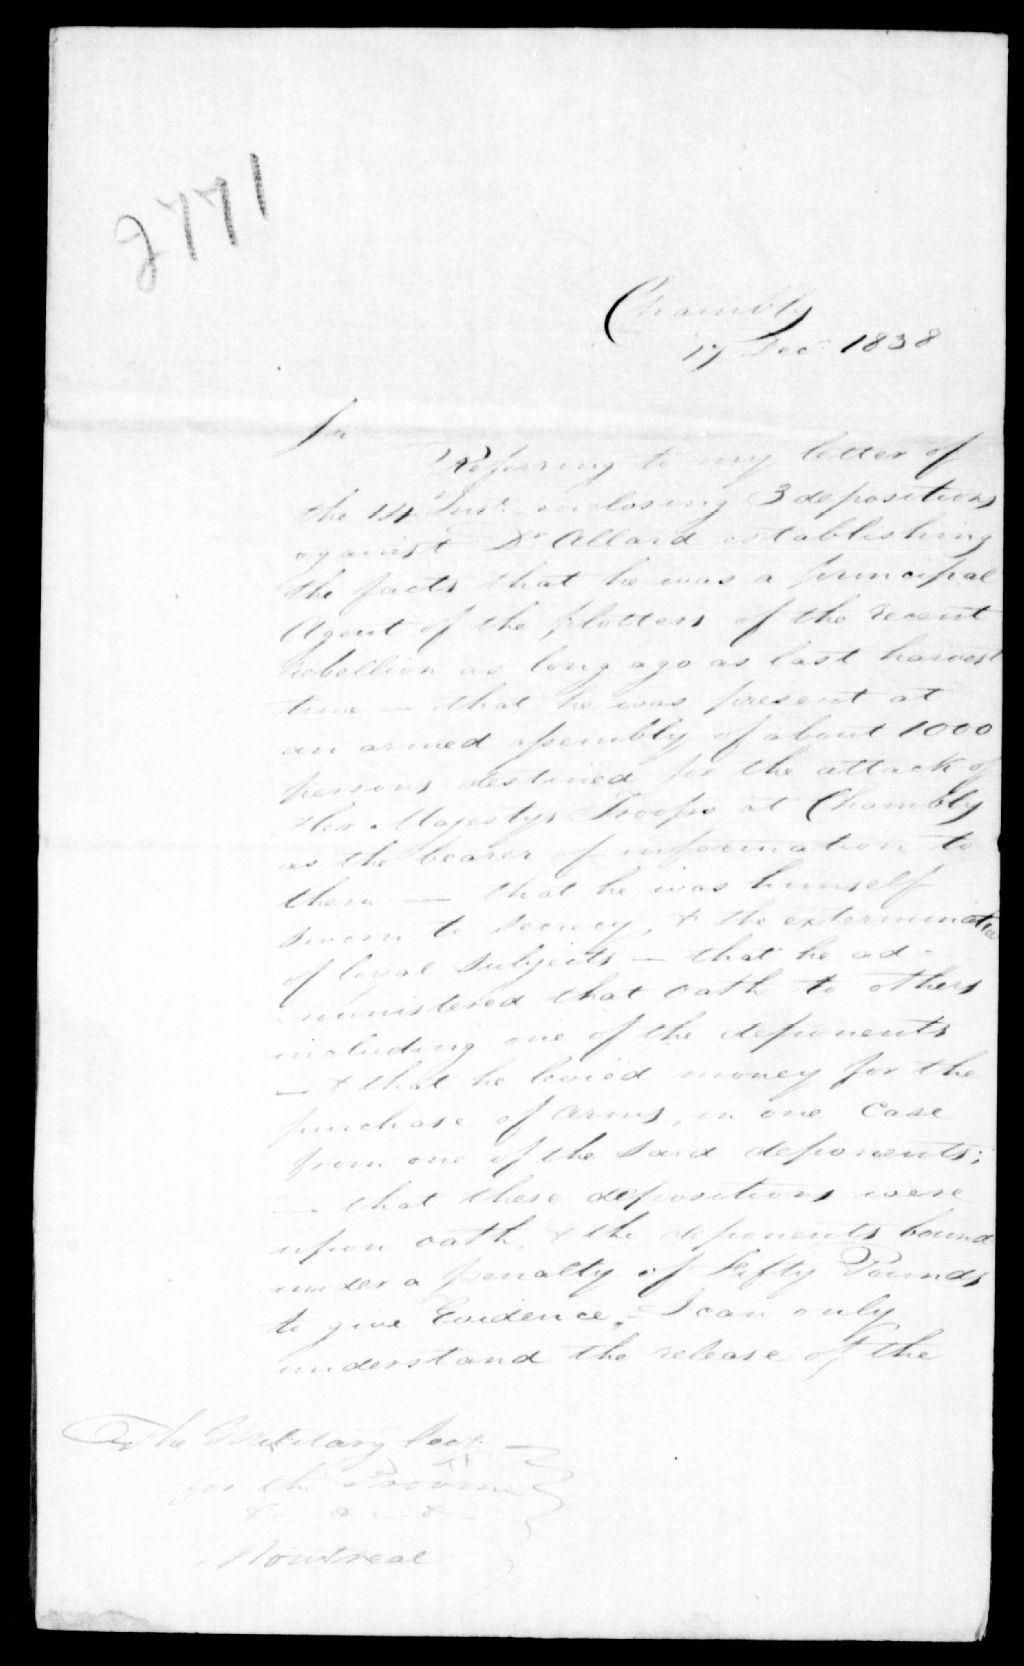 2771
Chambly
17 Decr 1838
Sir
Referring to my letter of
the 14 Inst. enclosing 3 depositions
against Dr Allard establishing
the facts that he was a principal
Agent of the plotters of the recent
rebellion as long ago as last harvest
time — that he was present at
an armed assembly of about 1000
persons destined for the attack of
Her Majestys Troops at Chambly
as the bearer of information to
them — that he was himself
sworn to secrecy, & the extermination
of loyal subjects — that he ad-
-ministered that oath to others
including one of the deponents
— & that he levied money for the
purchase of arms, in one case
from one of the said deponents;
— that these depositions were
upon oath, & the deponents bound
under a penalty of Fifty Pounds
to give Evidence. I can only
understand the release of the
The Military Secy.
for the Province
&c &c &c
Montreal